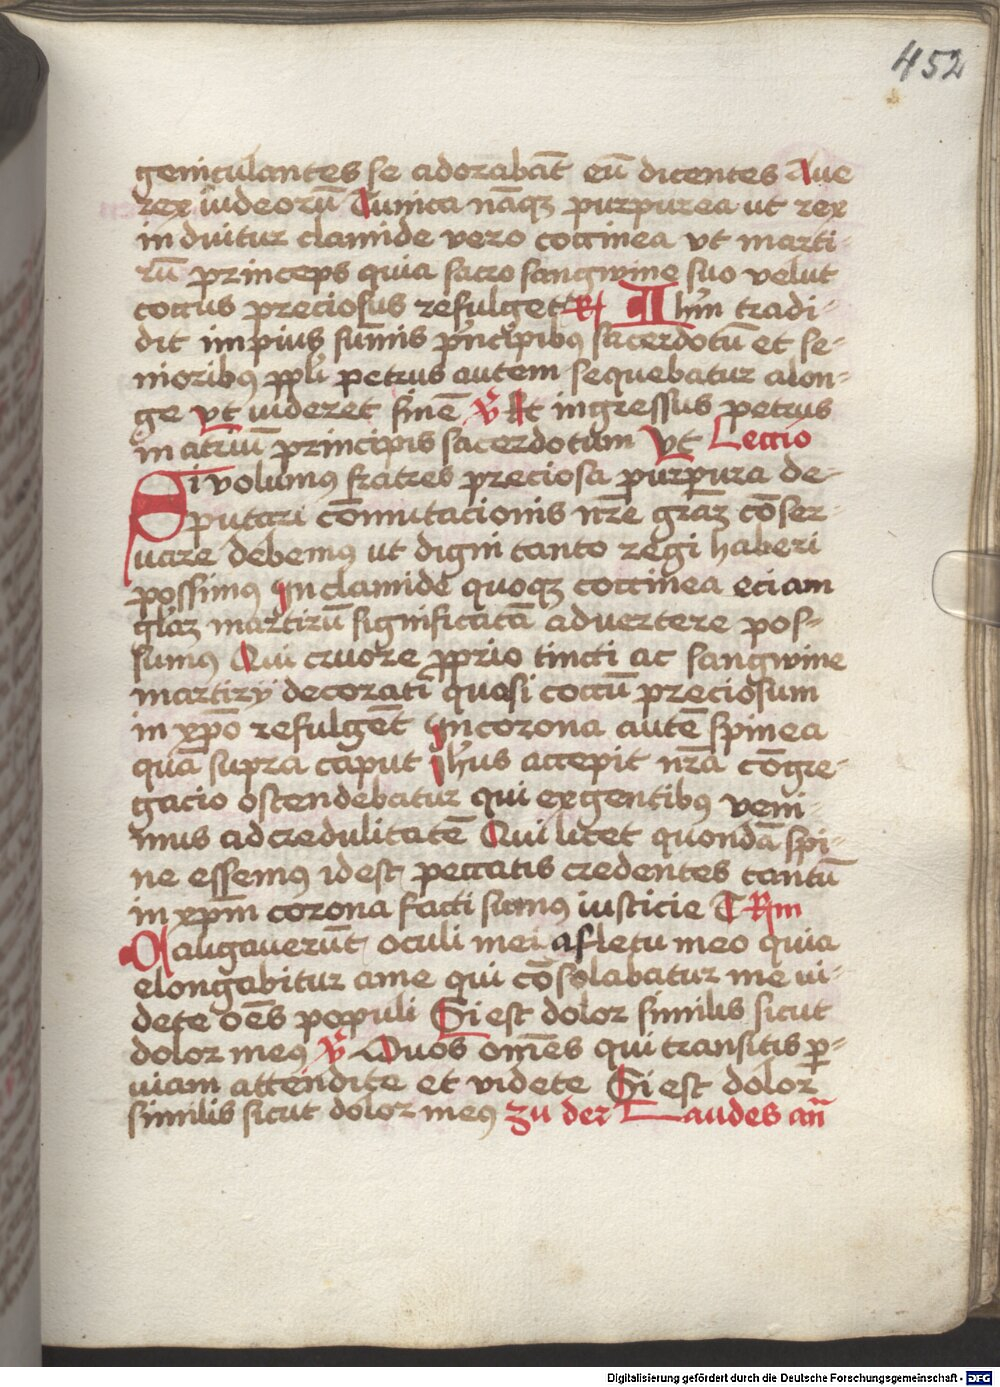 452
geniculantes se adorabāt eū dicentes Aue
rex iudeorū Tunica nāqꝫ purpurea ut rex
induitur clamide vero coccinea vt marti-
rū princeps quia sacro sangwine suo velut
coccus preciosus refulget R Ihm̄ tradi-
dit impius sūmis pͥncipibꝰ sacerdotū et se-
nioribꝰ ppl̓i petrus autem sequebatur alon-
ge vt uideret finē V Et ingressus petrus
in atriū principis sacerdotum vt Leccio
Si volumꝰ fratres preciosa purpura de-
putari cōmutacionis nr̄e graꝫ cōser-
uare debemꝰ ut digni tanto regi haberi
possimꝰ In clamide quoqꝫ coccinea eciam
gl̓aꝫ martirū significatā aduertere pos-
sumꝰ Qui cruore ꝓprio tincti ac sangwine
martirӱ decorati quasi coccū preciosum
in xp̄o refulgēt In corona autē spinea
quā supra caput ihus accepit nr̄ā cōgre-
gacio ostendebatur qui ex gentibꝰ veni-
mus ad credulitatē Qui licet quondā spi-
ne essemꝰ idest peccatis credentes tantū
in xp̄m corona facti sumꝰ iusticie T Rm
Caligauerūt oculi mei a fletu meo quia
elongabitur ame qui cōsolabatur me ui-
dete oēs populi Si est dolor similis sicut
dolor meꝰ V O uos om̄es qui transitis ꝑ-
uiam attendite et videte Si est dolor
similis sicut dolor meꝰ zu der Laudes an̄
Digitalisierung gefördert durch die Deutsche Forschungsgemeinschaft - DFG